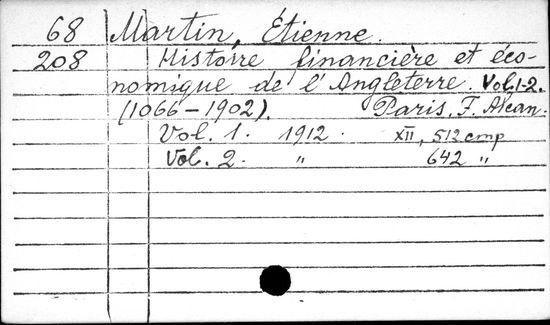 68 Martin, Étienne.
208 Histoire financière et éco-
nomique de l'Angleterre. Vol. 1-2.
(1066-1902). Paris, F. Alcan.
Vol. 1. 1912. XII, 512 стр
Vol. 2. " 642 "